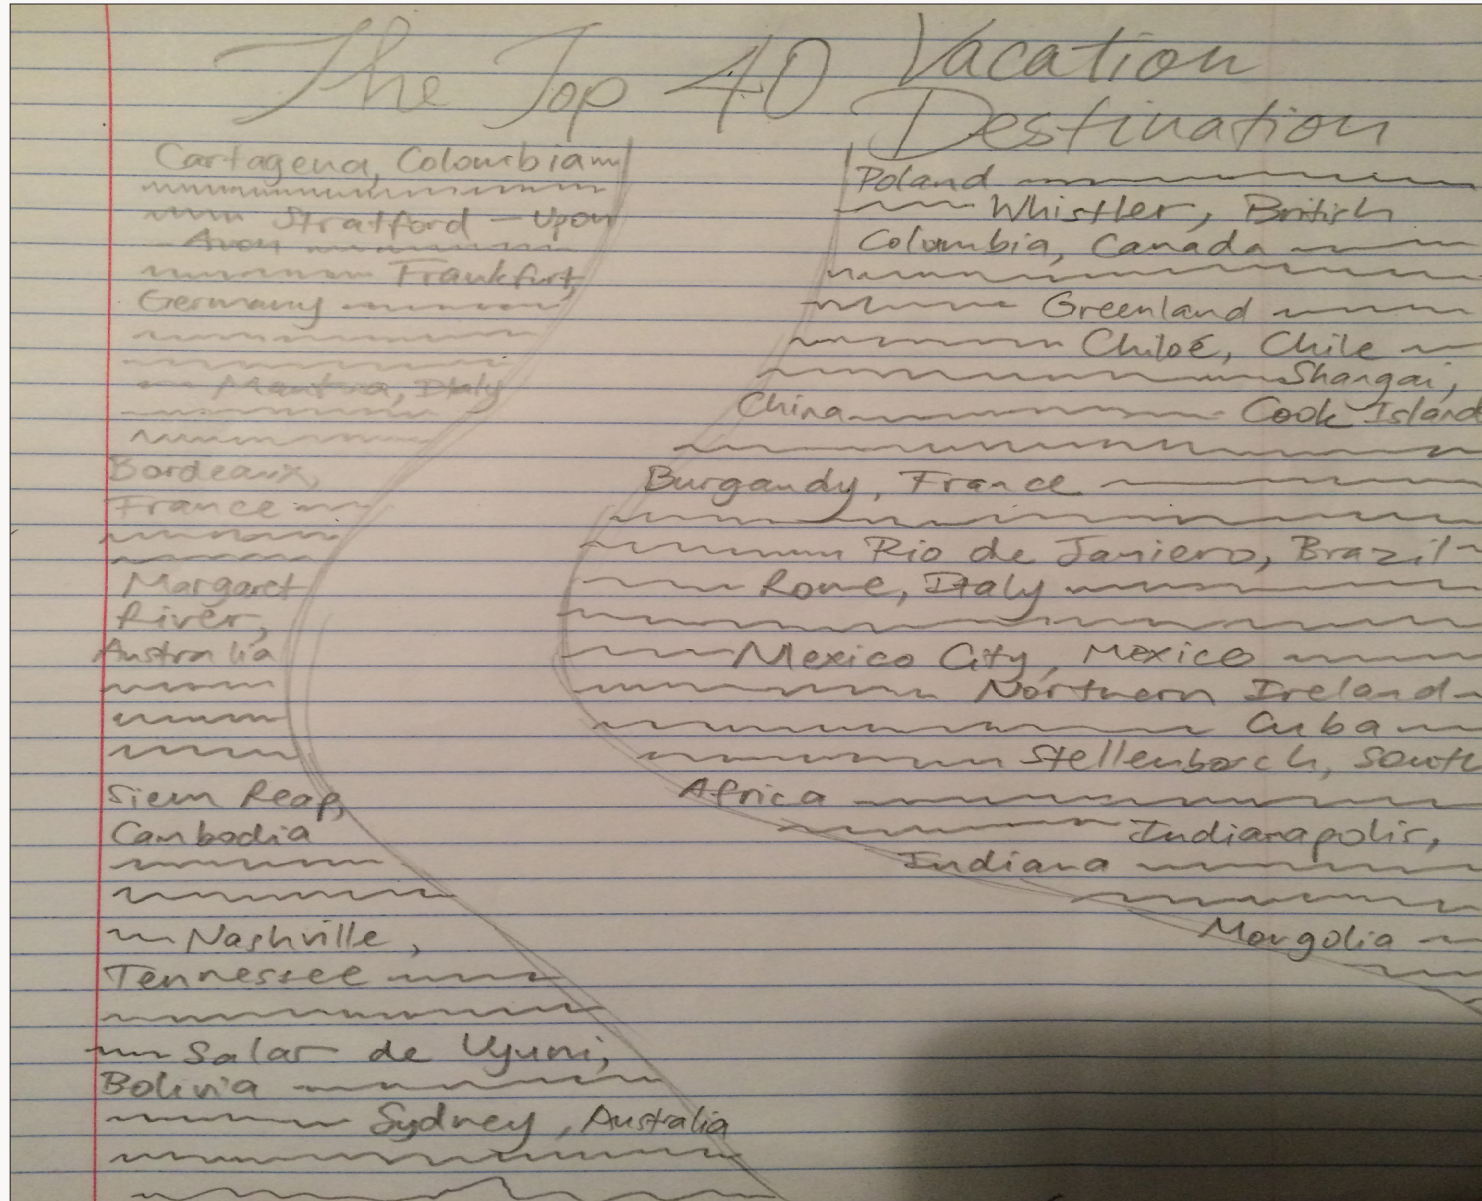 The Top 40 Vacation
Destination
Cartagena, Colombia
Stratford - Upon
Avon
Frankfurt,
Germany
Mantua, Italy
Bordeaux,
France
Margaret
River,
Australia
Siem Reap,
Cambodia
Nashville,
Tennessee
Salar de Uyuni,
Bolivia
Sydney, Australia
Poland
Whistler, British
Columbia, Canada
Greenland
Chiloé, Chile
Shangai,
China Cook Island
Burgandy, France
Rio de Janiero, Brazil
Rome, Italy
Mexico City, Mexico
Northern Ireland
Cuba
Stellenborch, South
Africa
Indianapolis,
Indiana
Mongolia